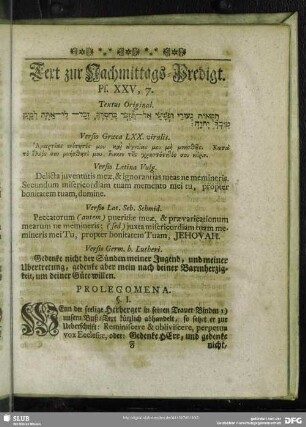 Text zur Nachmittags-Predigt.
Ps. XXV, 7.
Textus Original.
חטאות נעורי ופשעי אל־תזכר כחסדך זכר־לי־אתה למען
טובך יהוה:
Versio Græca LXX. viralis.
Κατὰ
τὸ ἔλεός σου
Versio Latina Vulg.
Delicta juventutis meæ, & ignorantias meas ne memineris.
Secundum misericordiam tuam memento mei tu, propter
bonitatem tuam, domine.
Versio Lat. Seb. Schmid.
Peccatorum (autem) pueritiæ meæ, & prævaricationum
mearum ne memineris; (sed) juxta misericordiam tuam me-
mineris mei Tu, propter bonitatem Tuam, JEHOVAH.
Versio Germ. b. Lutheri.
Gedencke nicht der Sünden meiner Jugend, und meiner
Ubertretung, gedencke aber mein nach deiner Barmhertzig-
keit, um deiner Güte willen.
PROLEGOMENA.
§. I.
WEnn der seelige Herberger in seinen Trauer-Binden
unsern Buß-Text kürtzlich abhandelt, so setzet er zur
Ueberschrift: Reminiscere & obliviscere, perpetua
vox Ecclesiæ, oder: Gedencke HErr, und gedencke
F nicht,
SLUB
DFG